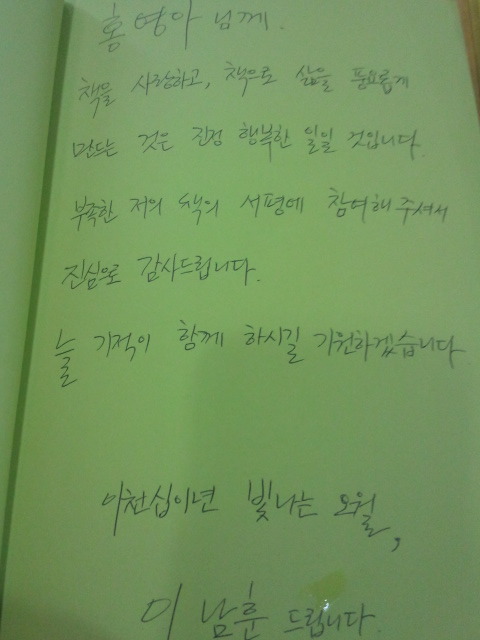 홍영아 님께.
책을 사랑하고, 책으로 삶을 풍요롭게
만드는 것은 진정 행복한 일일 것입니다.
부족한 저의 책의 서평에 참여해주셔서
진심으로 감사드립니다.
늘 기적이 함께 하시길 기원하겠습니다
이천십이년 빛나는 오월,
이남훈 드립니다.